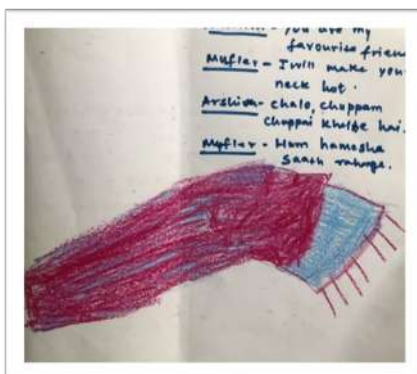 you are my
favourite friend
Mufler - I will make you
neck hot.
Arshiya - chalo, chuppam
chuppai khelte hai.
Mufler - Hum hamesha
Saath rahnge.